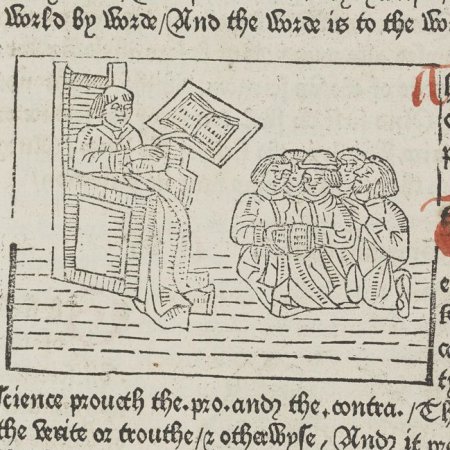 World by worde/And the worde is to the wo
Science proueth the.pro.and the.contra./Th
the verite or trouthe/& otherwyse, And it pro